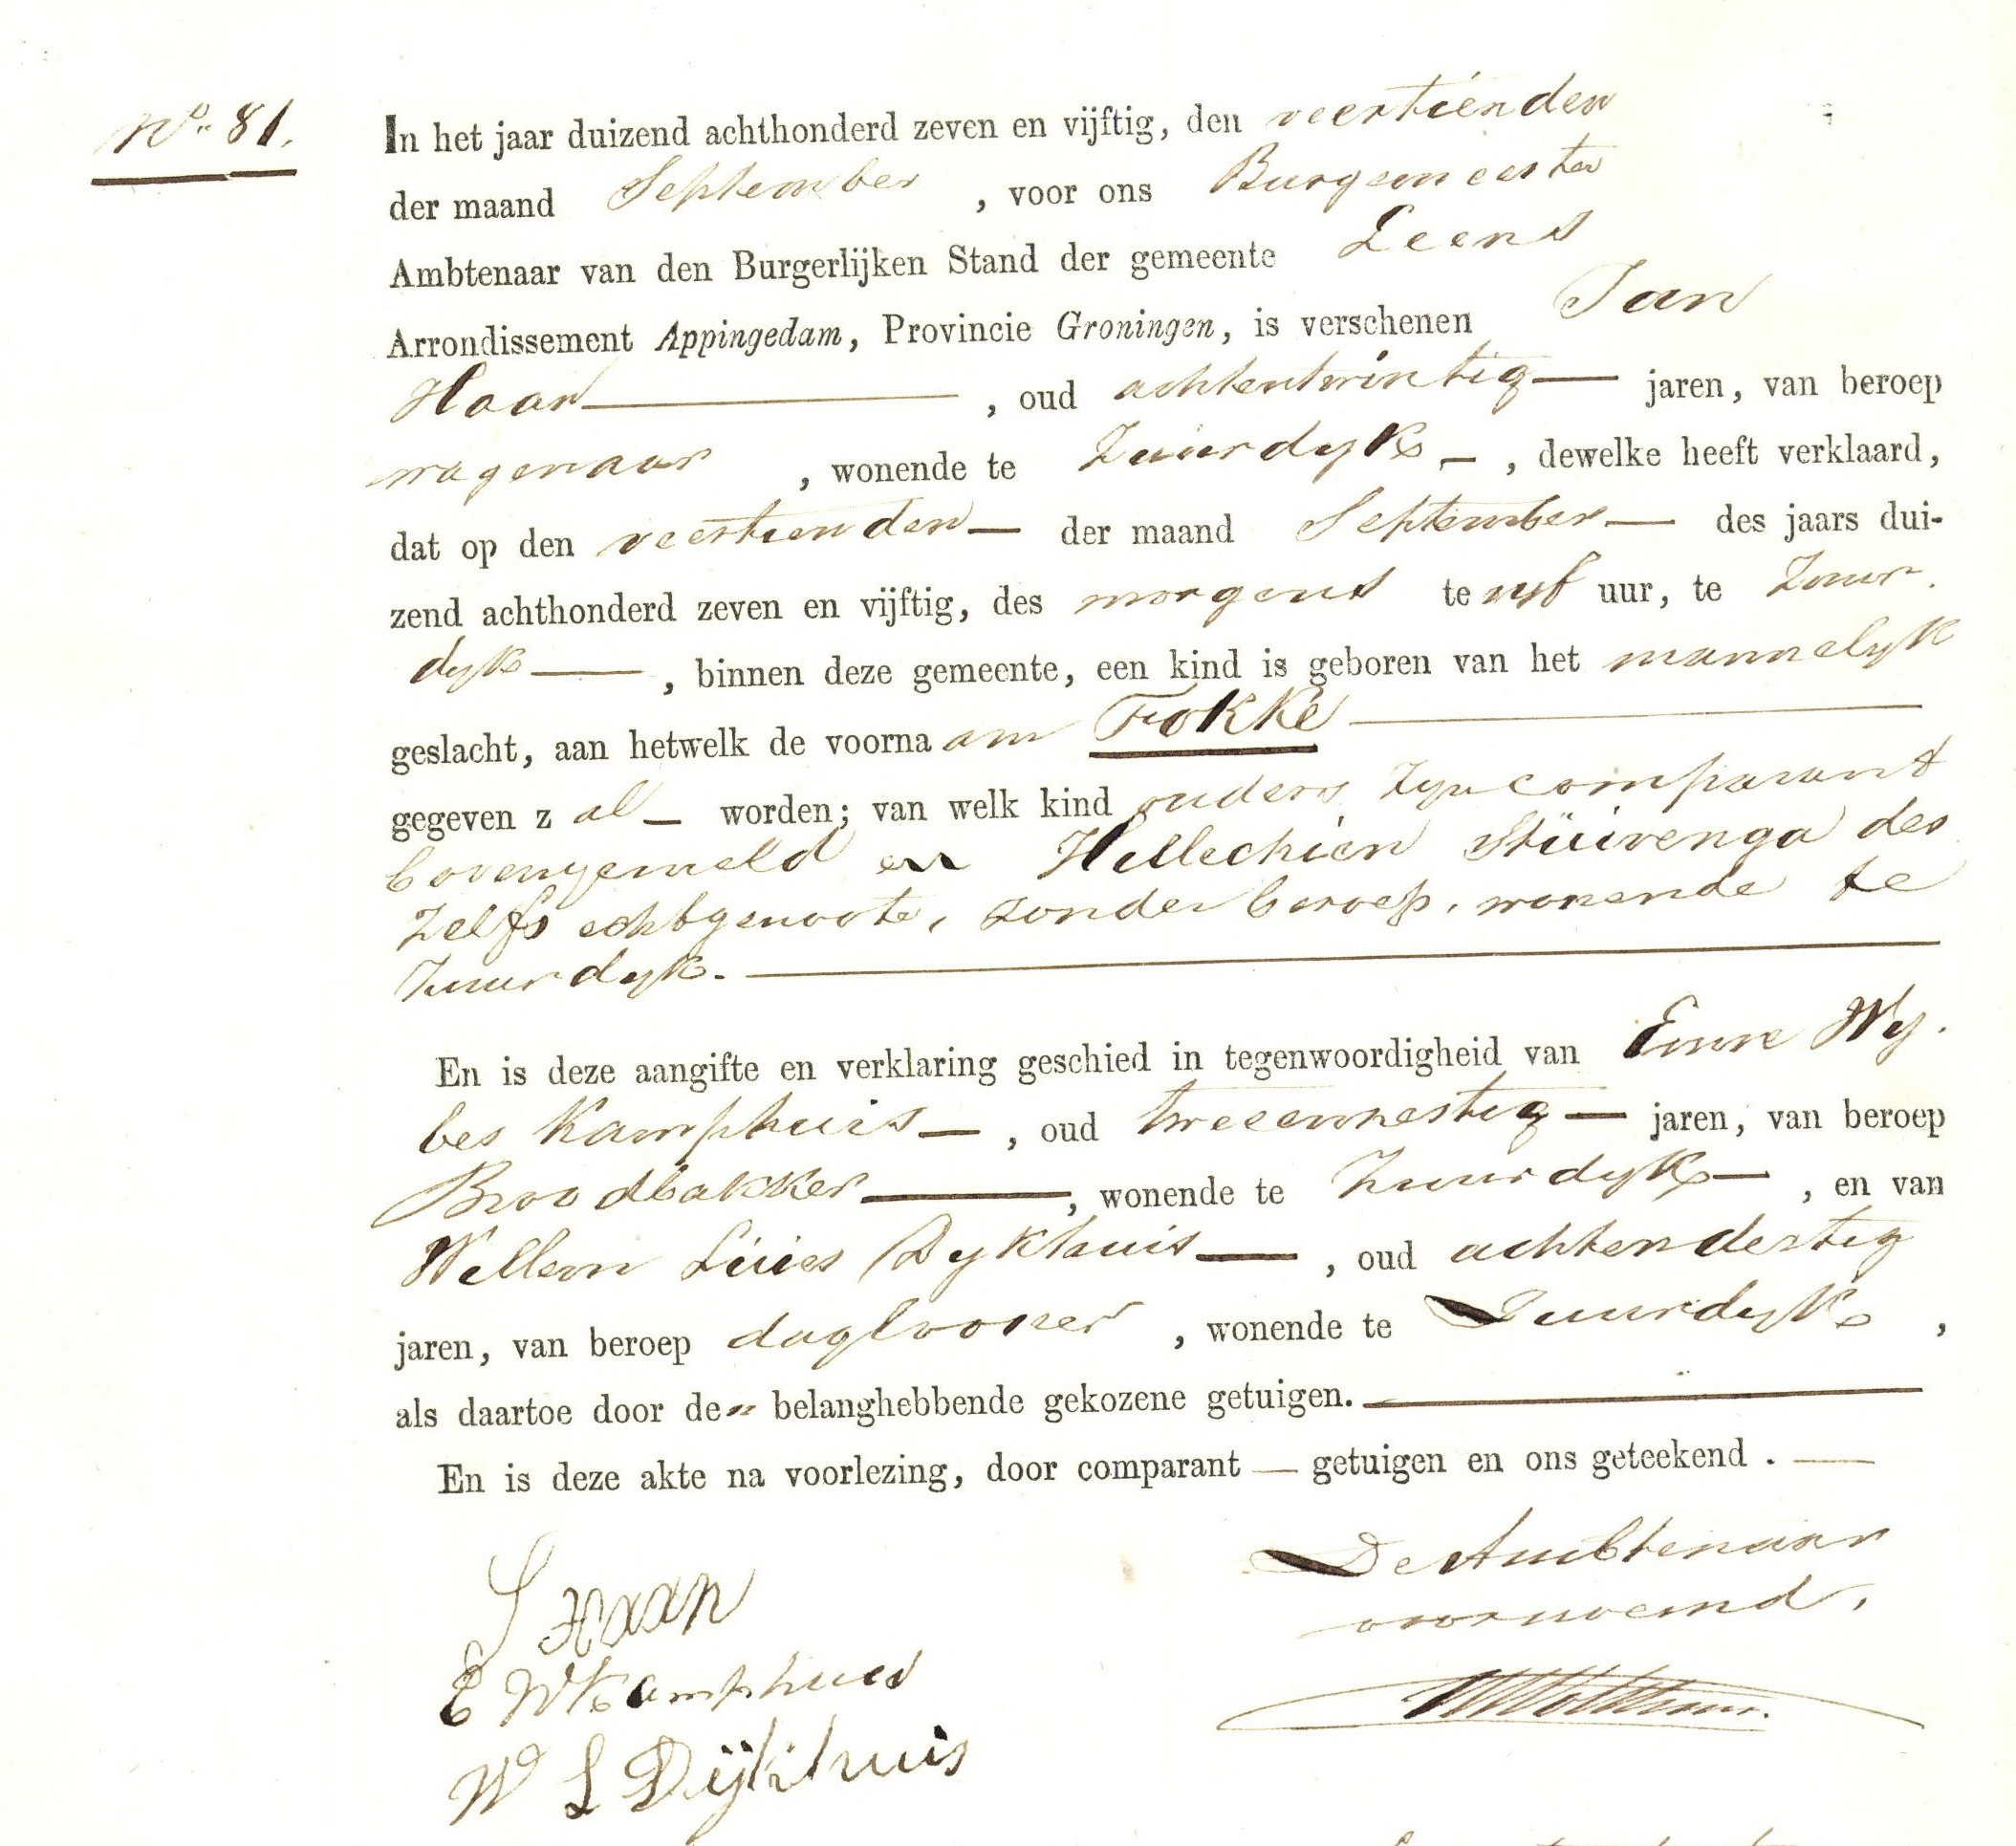 No. 81.
In het jaar duizend achthonderd zeven en vijftig, den veertienden
der maand September , voor ons Burgemeester
Ambtenaar van den Burgerlijken Stand der gemeente Leens
Arrondissement Appingedam, Provincie Groningen, is verschenen Jan
Haan — , oud achtentwintig — jaren, van beroep
wagenaar , wonende te Zuurdyk — , dewelke heeft verklaard,
dat op den veertienden — der maand September — des jaars dui-
zend achthonderd zeven en vijftig, des morgens te vyf uur, te Zuur-
dyk — , binnen deze gemeente, een kind is geboren van het mannelyk
geslacht, aan hetwelk de voornaam Fokke —
gegeven zal — worden; van welk kind ouders zyn comparant
bovengemeld en Hillechien Stuivenga des
zelfs echtgenoote, zonder beroep, wonende te
Zuurdyk. —
En is deze aangifte en verklaring geschied in tegenwoordigheid van Enne Wy-
bes Kamphuis — , oud tweeenzestig — jaren, van beroep
Broodbakker — , wonende te Zuurdyk — , en van
Willem Luies Dykhuis — , oud achtendertig
jaren, van beroep daglooner , wonende te Zuurdyk ,
als daartoe door de belanghebbende gekozene getuigen. —
En is deze akte na voorlezing, door comparant — getuigen en ons geteekend . —
De Ambtenaar
voornoemd,
J Haan
E W Kamphuis
W L Dijkhuis